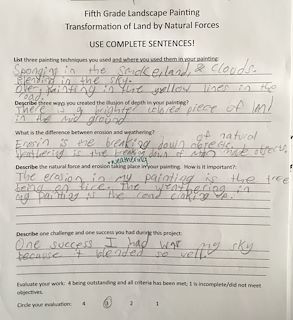 Fifth Grade Landscape Painting
Transformation of Land by Natural Forces
USE COMPLETE SENTENCES!
List three painting techniques you used and where you used them in your painting:
Sponging in the & clouds.
Blending in the sky.
Over painting in the yellow lines in the
road.
Describe three ways you created the illusion of depth in your painting?
There is a brighter colored piece of land
in the mid ground
What is the difference between erosion and weathering?
of natural
Erosin is the breaking down objects.
Wathering is breaking down of man made objects.
weathering
Describe the natural force and erosion taking place in your painting. How is it important?:
The erosion in my painting is the tree
being on fire. The weathering in
my painting is the road craking up.
Describe one challenge and one success you had during this project:
One success I had was my sky
because it blended so well.
Evaluate your work: 4 being outstanding and all criteria has been met; 1 is incomplete/did not meet
objectives.
Circle your evaluation: 4 3 2 1